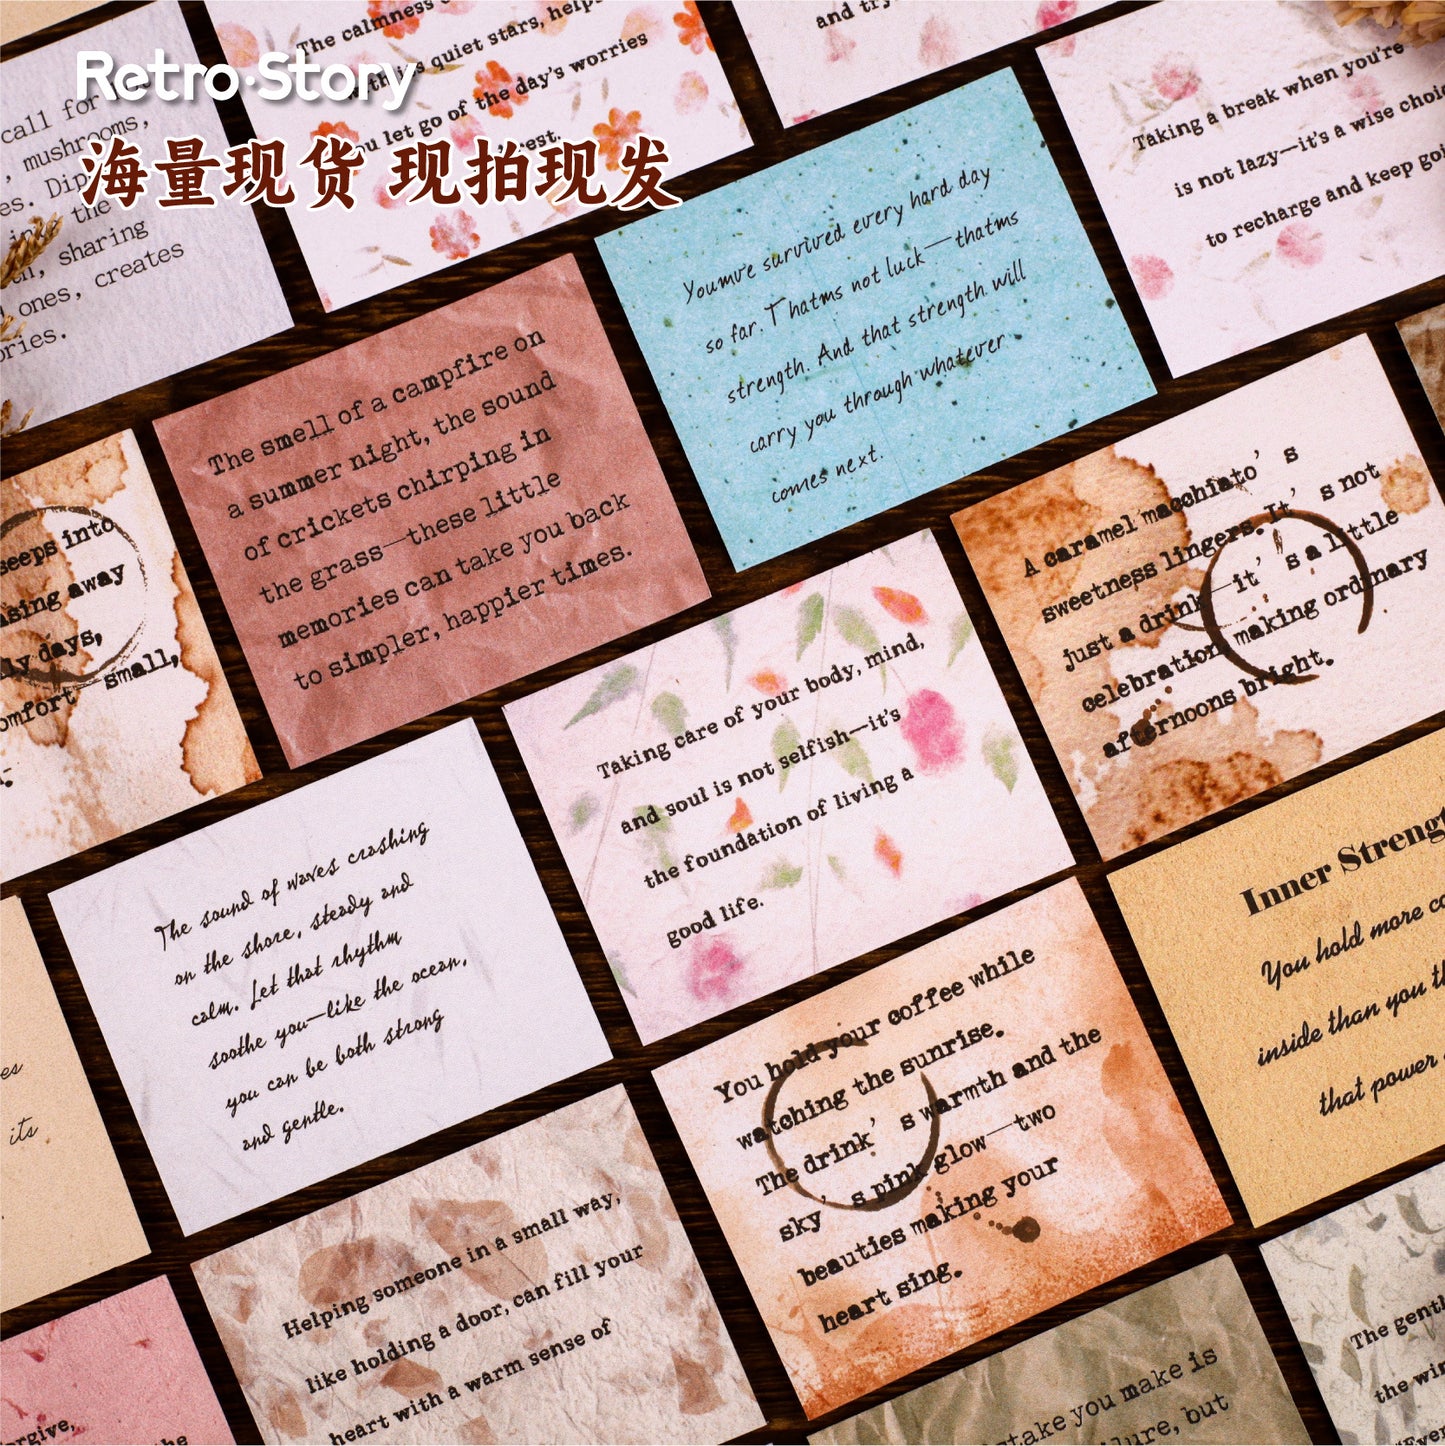 Retro·Story
海量现货 现拍现发
call for
mushrooms,
es. Dip
the
sharing
ones, creates
ories.
The calmness
quiet stars, helps
ou let go of the day's worries
rest.
and try
Taking a break when you're
is not lazy—it's a wise choic
to recharge and keep goi
Youmve survived every hard day
so far. Thatms not luck—thatms
strength. And that strength will
carry you through whatever
comes next.
The smell of a campfire on
a summer night, the sound
of crickets chirping in
the grass—these little
memories can take you back
to simpler, happier times.
seeps into
asing away
ly days,
omfort small,
A caramel macchiato’s
sweetness lingers. It’s not
just a drink—it’s a little
celebration making ordinary
afternoons bright.
Taking care of your body, mind,
and soul is not selfish—it's
the foundation of living a
good life.
The sound of waves crashing
on the shore, steady and
calm. Let that rhythm
soothe you—like the ocean,
you can be both strong
and gentle.
Inner Strengt
You hold more co
inside than you th
that power
es
its
You hold your coffee while
watching the sunrise.
The drink’s warmth and the
sky’s pink glow—two
beauties making your
heart sing.
Helping someone in a small way,
like holding a door, can fill your
heart with a warm sense of
orgive,
the
stake you make is
ilure, but
The gentl
the win
"Ever